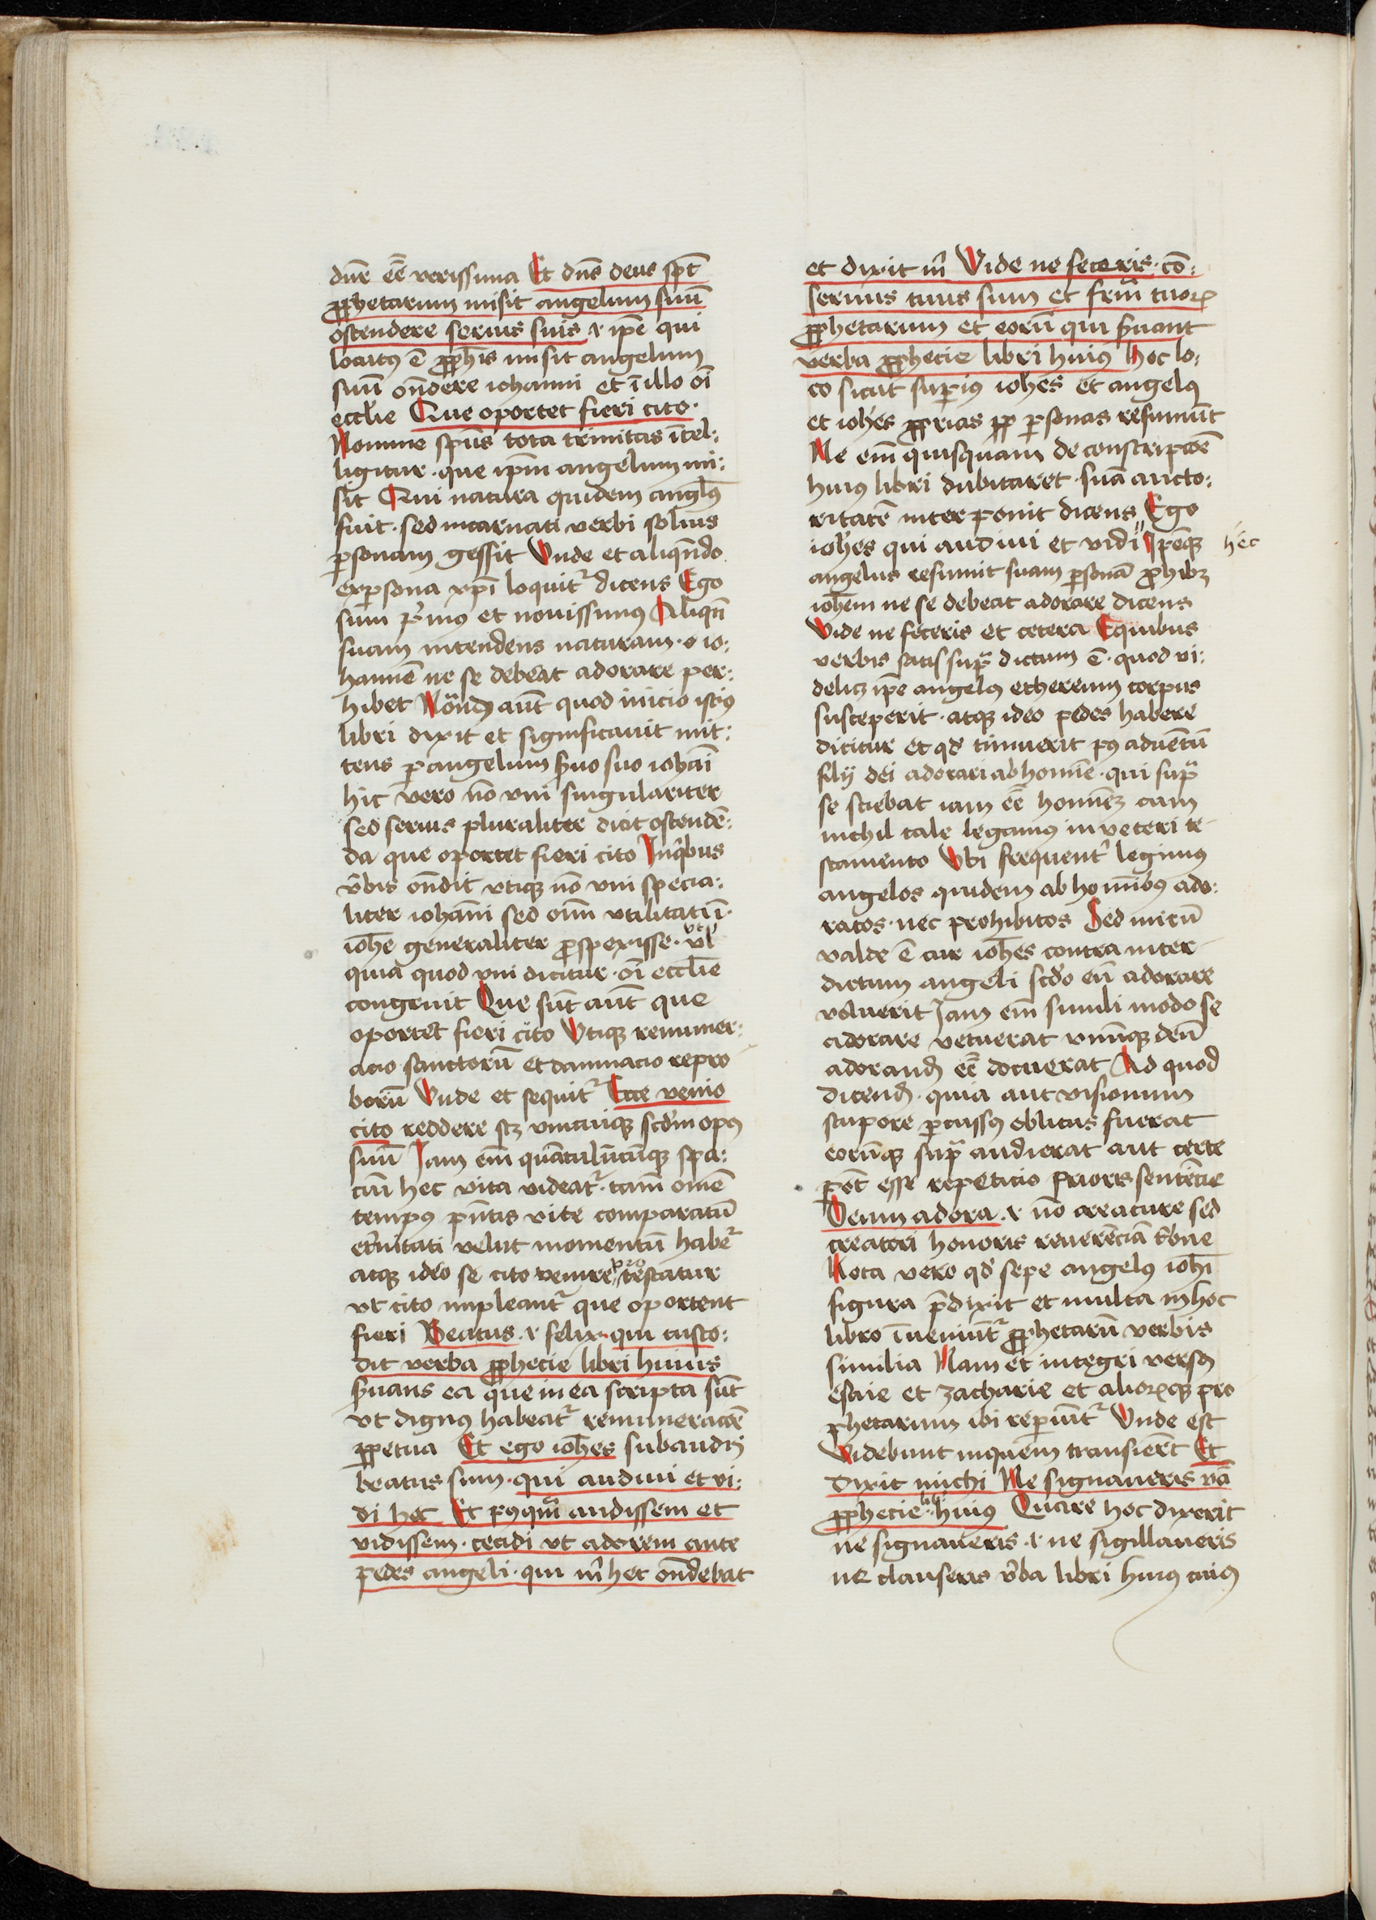 dūr eē verissima Et dn̄s deus spt̄
ꝓphetarum misit angelum suū
ostendere seruis suis .i. ip̄e qui
locutꝰ ē ꝓphīs misit angelum
suū on̄dere iohanni et ī illo oī
eccl̄ie Que oportet fieri cito ·
Nomine sp̄us tota trinitas ītel:
ligitur · que ip̄m angelum mi:
sit Qui natura quidem angl̄us
fuit · sed incarnati verbi solius
ꝑsonam gessit Unde et aliqn̄do
ex ꝑsona xp̄i loquit᷑ dicens Ego
sum pͥmus et nouissimꝰ Aliqn̄
suam intendens naturam · io:
hannē ne se debeat adorare per:
hibet Notand aūt quod inicio istiꝰ
libri dixit et significauit mit:
tens ꝑ angelum suo iohāī
hic vero nō vni singulariter
sed seruis pluraliter dicit ostendē:
da que oportet fieri cito In qͥbus
v̄bis on̄dit vtiqꝫ nō vni specia:
liter iohāni sed oīm vtilitati ī ·
ioh̄e generaliter ꝓspexisse · vel
quia quod vni dicitur · oī eccl̄ie
congruit Que sūt aūt que
oportet fieri cito Utiqꝫ remuner:
acio sanctorū et damnacio repro
borū Unde et sequit᷑ Ecce venio
cito reddere scꝫ vnicuiqꝫ scd̄m opꝰ
suū Iam eīm quātulūcūqꝫ spa:
ciū hec vita videat᷑ · tam̄ omē
tempꝰ p̄ntis vite comparatū
et̄nitati velut momentū habet᷑
atqꝫ ideo se cito venire testatur
vt cito impleant᷑ que oportent
fieri Beatus .i. felix · qui custo:
dit verba ꝓphecie libri huius
s̄uans ea que in ea scripta sūt
vt dignꝰ habeat᷑ remuneracōe
ꝑpetua Et ego ioh̄es subaudi
beatus sum · qui audiui et vi:
di hec Et pꝰqm̄ audissem et
vidissem · cecidi vt adorem ante
pedes angeli · qui m̄ hec on̄debat
et dixit m̄ Vide ne feceris · cō:
seruus tuus sum et frm̄ tuoꝝ
ꝓphetarum et eorū qui s̄uant
verba ꝓphecie libri huiꝰ Hoc lo:
co sicut supͥiꝰ ioh̄es et angelꝰ
et ioh̄es ꝓprias ꝑsonas resumūt
Ne eīm quisquam de conscripcōe
huiꝰ libri dubitaret · suā aucto:
ritatē interponit dicens Ego
ioh̄es qui audiui et vidi " Ip̄eqꝫ
hec
angelus resumit suam ꝑsonā ꝓhibꝫ
ioh̄em ne se debeat adorare dicens
Vide ne feceris et cetera E quibus
verbis satis sup̄ dictum ē · quod vi:
delicꝫ ip̄e angelꝰ ethereum corpus
susceperit · atqꝫ ideo pedes habere
dicitur et qd̄ timuerit pꝰ aduentū
filij dei adorari ab homīe · qui sup̄
se sciebat iam eē homīeꝫ cum
nichil tale legamꝰ in veteri te
stamento Ubi frequent᷑ legimꝰ
angelos quidem ab homībꝰ ado:
ratos · nec prohibitos Sed mirū
valde ē cur ioh̄es contra inter
dictum angeli scd̄o eū adorare
voluerit Iam eīm simili modo se
adorare vetuerat vnūqꝫ deū
adorand eē docuerat Ad quod
dicend · quia aut visionum
stupore ꝑcussꝰ oblitus fuerat
eorūqꝫ sup̄ audierat aut certe
pōt esse repeticio prioris sentēcie
Deum adora .i. nō creature sed
creatori honoris reuerēciā t᷑bue
Nota vero qd̄ sepe angelꝰ ioh̄i
figura p̄dixit et multa in hoc
libro īueniūt᷑ ꝓphetarū verbis
similia Nam et integri versꝰ
esaie et zacharie et alioꝝqꝫ pro
phetarum ibi reꝑiūt᷑ Unde est
Videbunt in quem transfixert̄ Et
dixit michi Ne signaueris v̄ba
ꝓphecie huiꝰ Quare hoc dixerit
ne signaueris .i. ne sigillaueris
ne clauseris v̄ba libri huiꝰ cuiꝰ